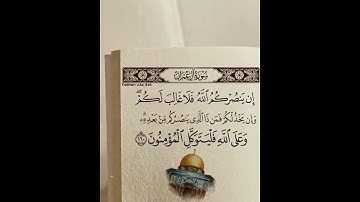 سورة آل عمران
إِن يَنصُرْكُمُ ٱللَّهُ فَلَا غَالِبَ لَكُمْ ۖ
وَإِن يَخْذُلْكُمْ فَمَن ذَا ٱلَّذِى يَنصُرُكُم مِّنۢ بَعْدِهِۦ ۗ
وَعَلَى ٱللَّهِ فَلْيَتَوَكَّلِ ٱلْمُؤْمِنُونَ ١٦٠